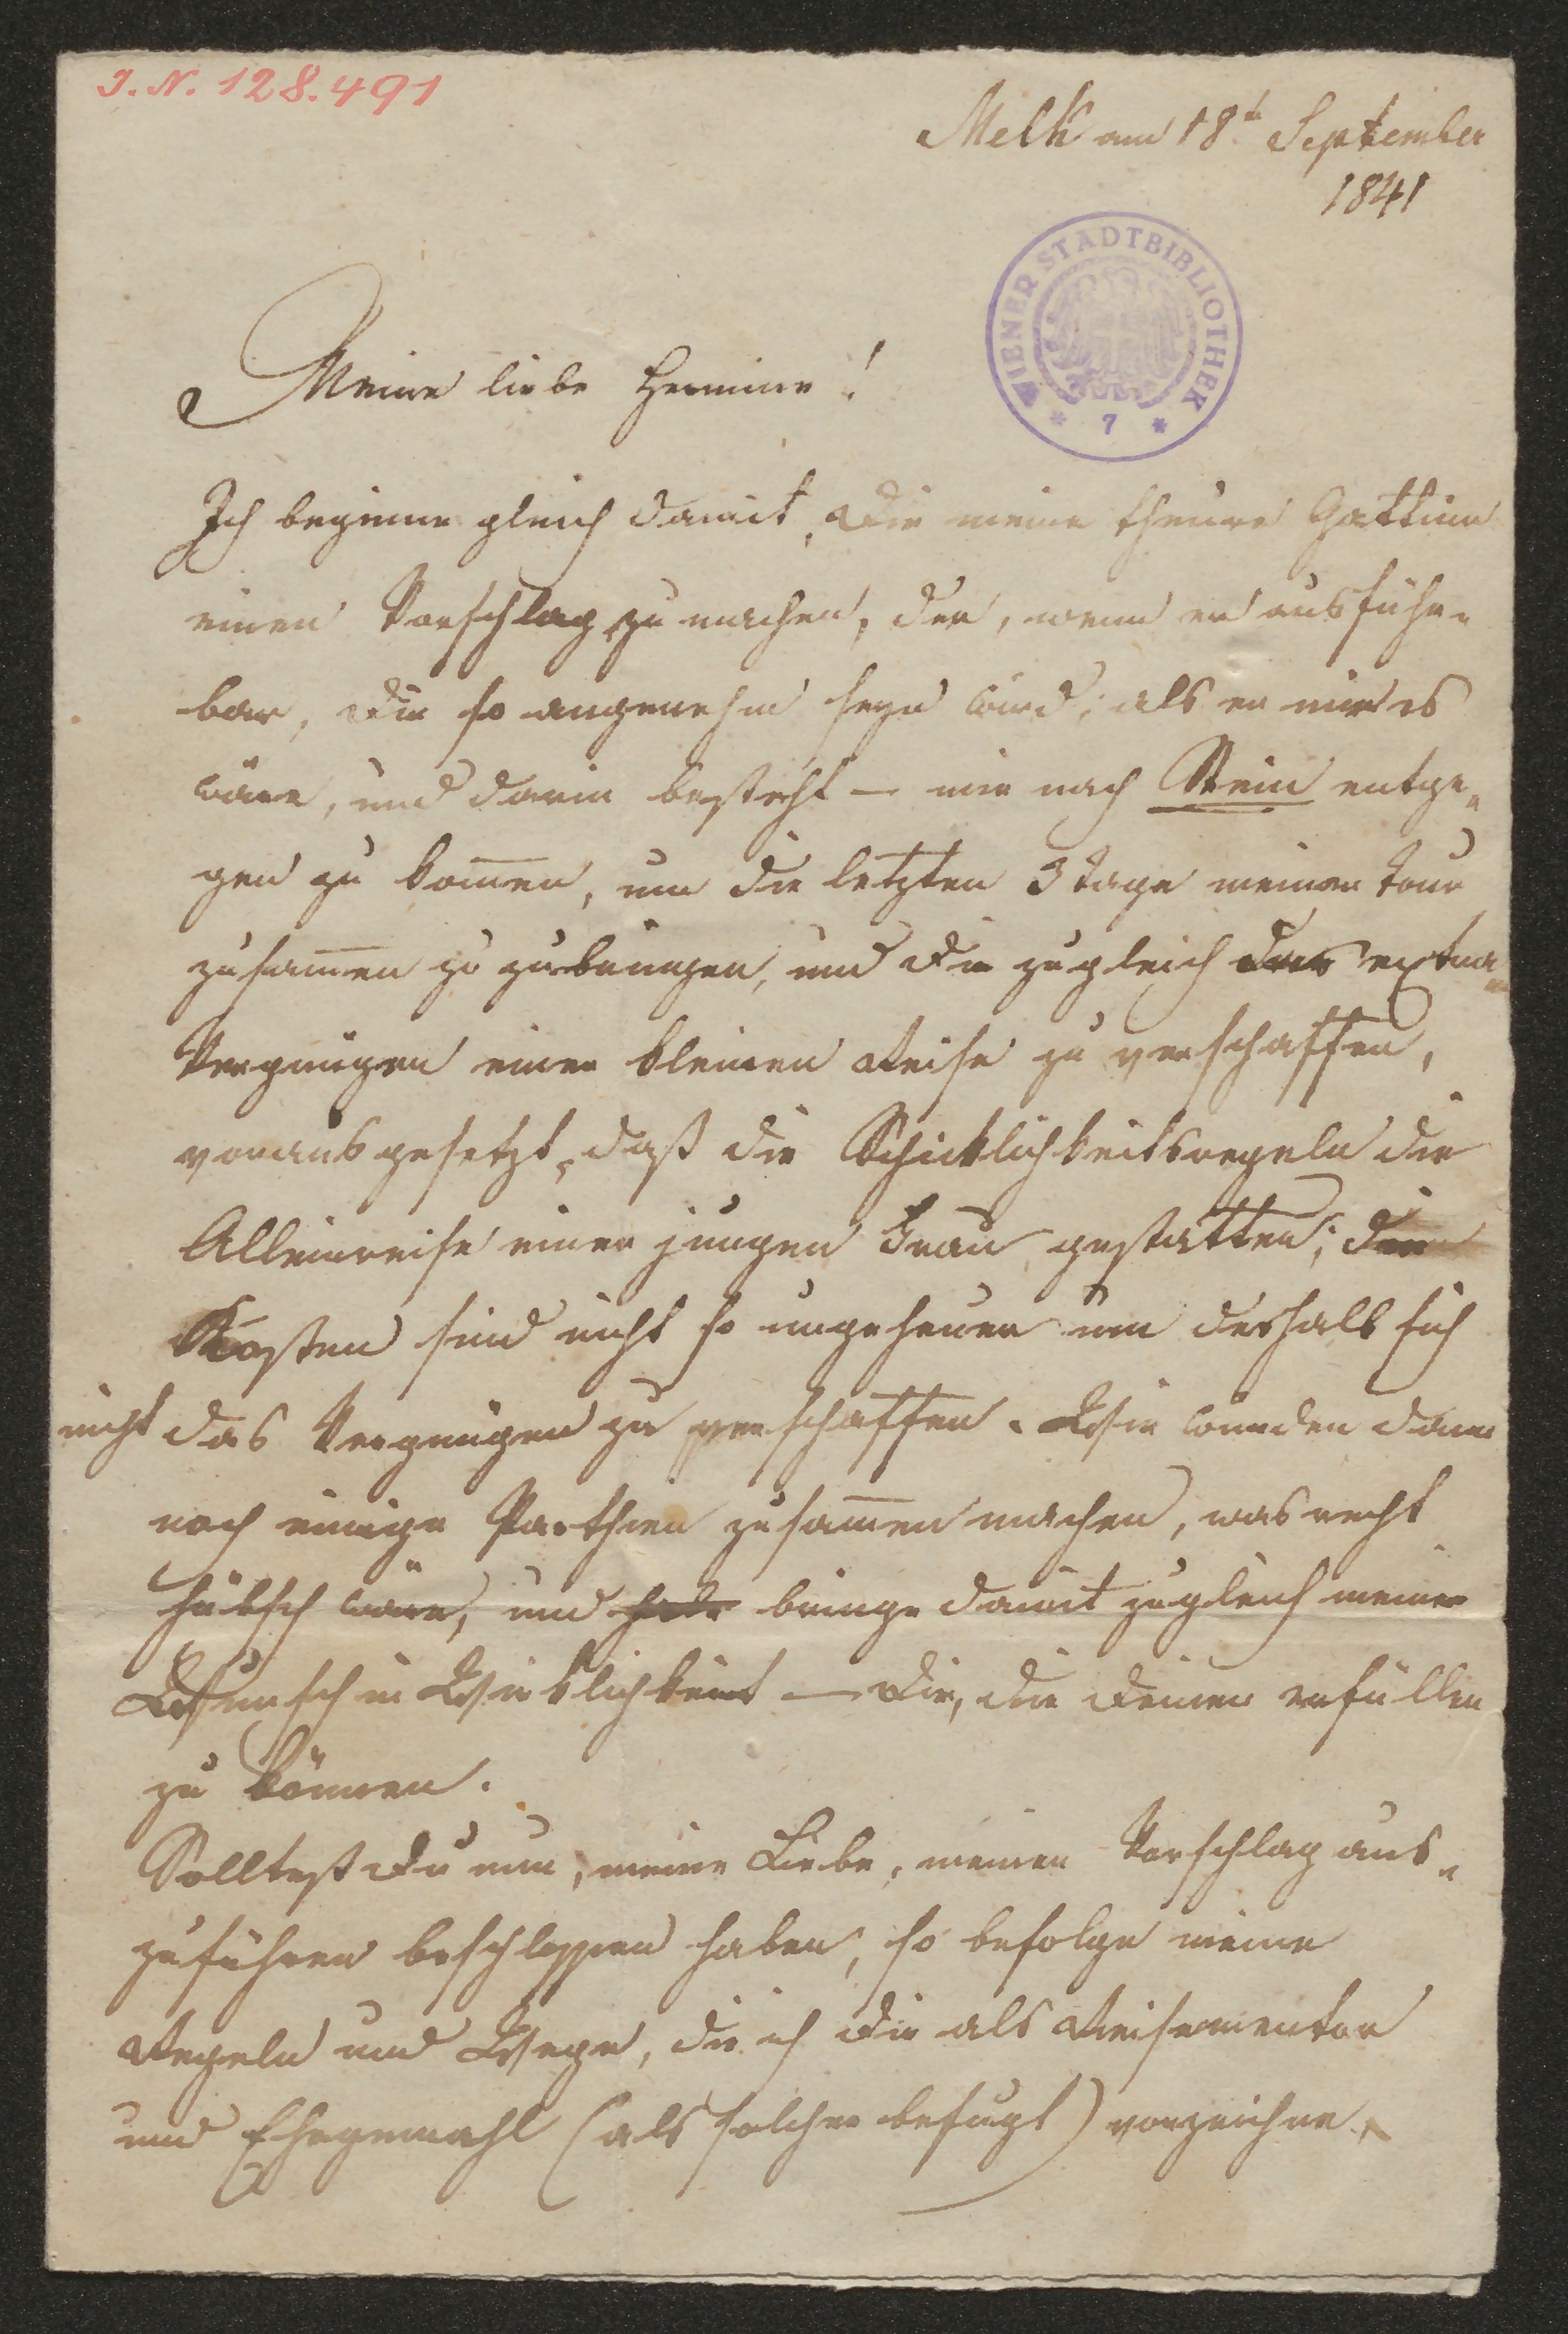 I. N. 128.491
Melk am 18t September
1841
WIENER STADTBIBLIOTHEK
* 7 *
Meine liebe Hermine!
Ich beginne gleich damit, Dir meine theure Gattinn
einen Vorschlag zu machen, der, wenn er ausführ-
bar, Dir so angenehm seyn wird, als er mir es
wäre, und darin besteht – mir nach Stein entge-
gen zu kom̄en, um die letzten 3 Tage meiner Tour
zusam̄en zu zubringen, und Dir zugleich das extra
Vergnügen einer kleinen Reise zu verschaffen,
vorausgesetzt, daß die Schicklichkeitsregeln die
Alleinreise einer jungen Frau gestatten; die
Kosten sind nicht so ungeheuer um deshalb sich
nicht das Vergnügen zu verschaffen. Wir würden dann
noch einige Parthien zusam̄en machen, was recht
hübsch wäre, und habe bringe damit zugleich meinen
Wunsch in Wirklichkeit – Dir, die Deinen erfüllen
zu können.
Solltest Du nun, meine Liebe, meinen Vorschlag aus-
zuführen beschlossen haben, so befolge meine
Regeln und Wege, die ich Dir als Reisementor
und Ehegemahl (als solcher befugt) vorzeichne.